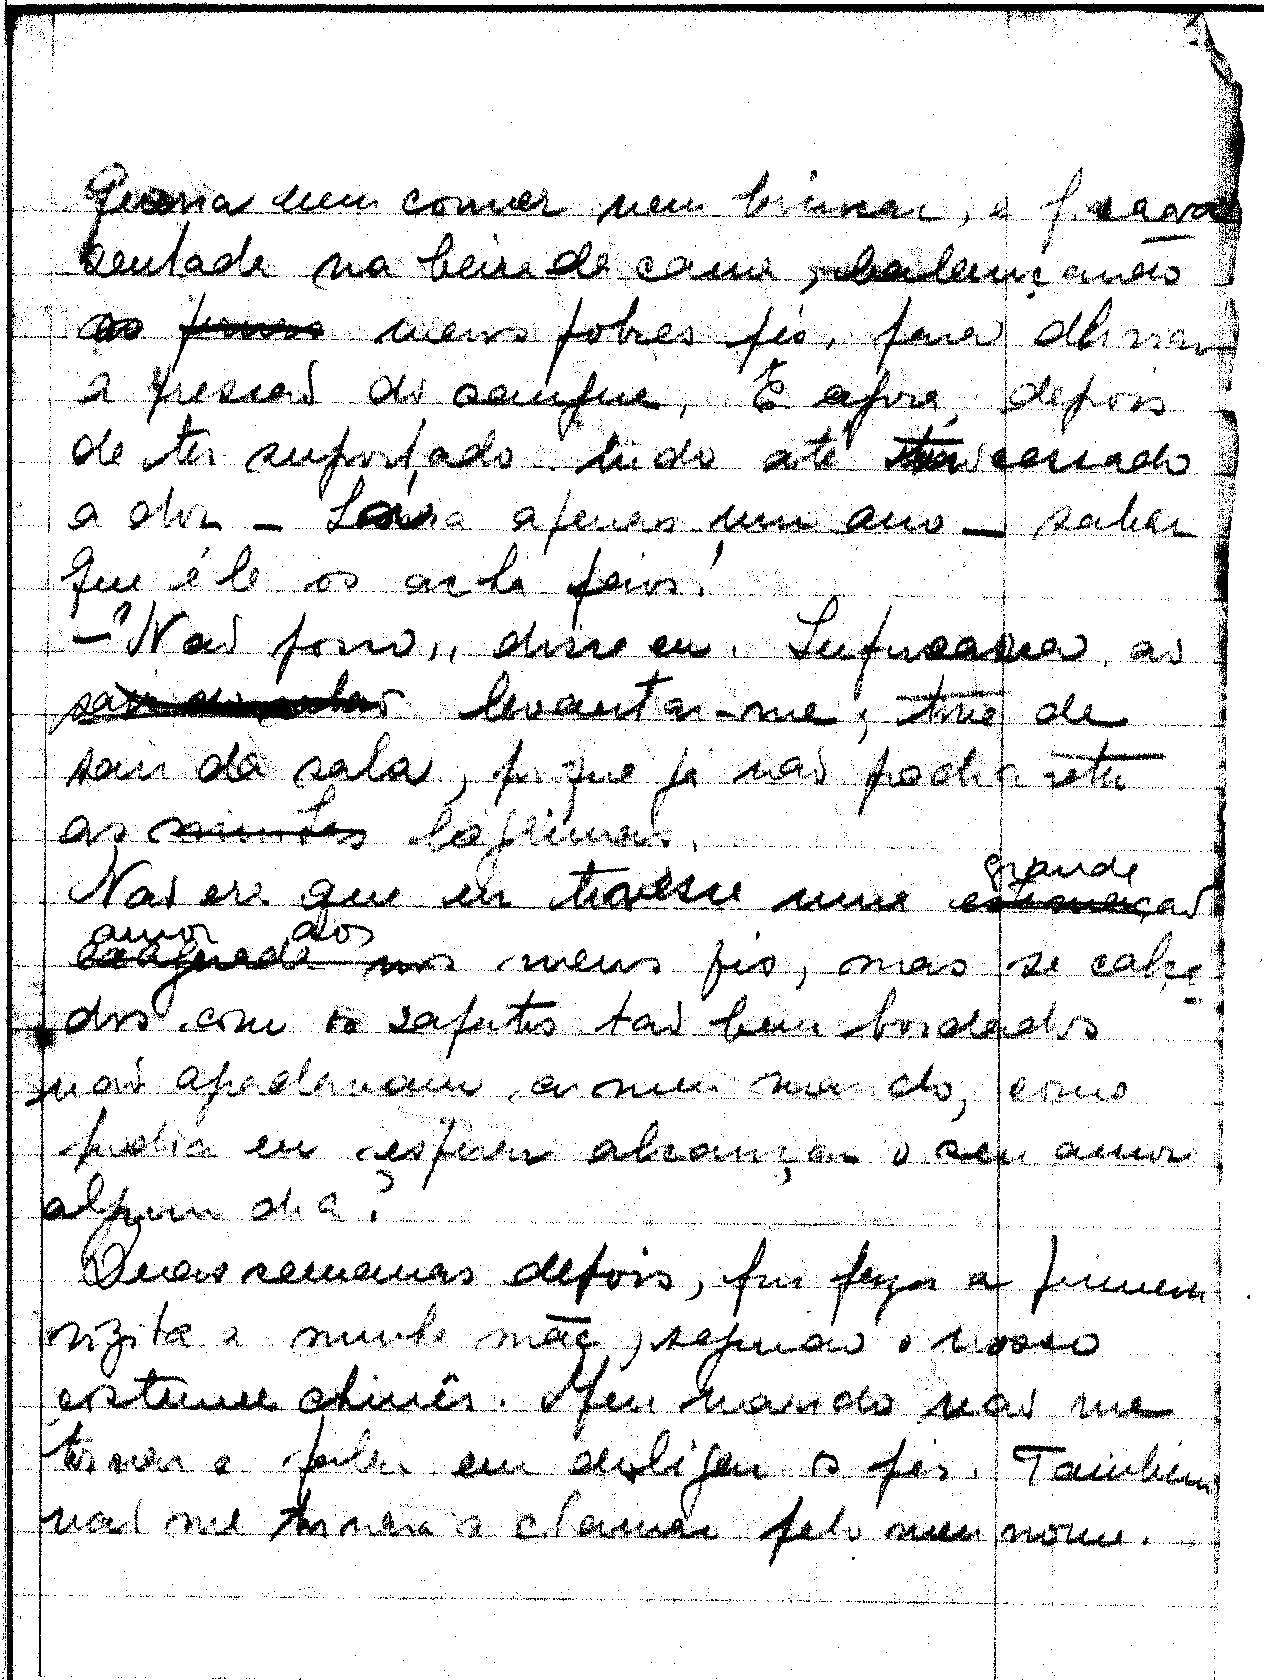 Queria nem comer nem brincar, e ficava
sentada na beira da cama, balançando
as pernas meus pobres pés, para aliviar
a pressão do sangue. E agora, depois
de ter suportado tudo até ter cessado
a dor — havia apenas um ano — saber
que êle os acha feios!
— "Não posso", disse eu. Sufocada, ao
levantar-me, tive de
sair da sala, porque já não podia reter
as minhas lágrimas.
grande
Não era que eu tivesse uma estimação
amor aos
exagerada nos meus pés, mas se calça-
dos com os sapatos tão bem bordados
não agradavam a meu marido, como
podia eu esperar alcançar o seu amor
algum dia?
Duas semanas depois, fui fazer a primeira
vizita a minha mãe, segundo o nosso
costume chinês. Meu marido não me
tornara a falar em desligar os pés. Também
não me tornara a chamar pelo meu nome.